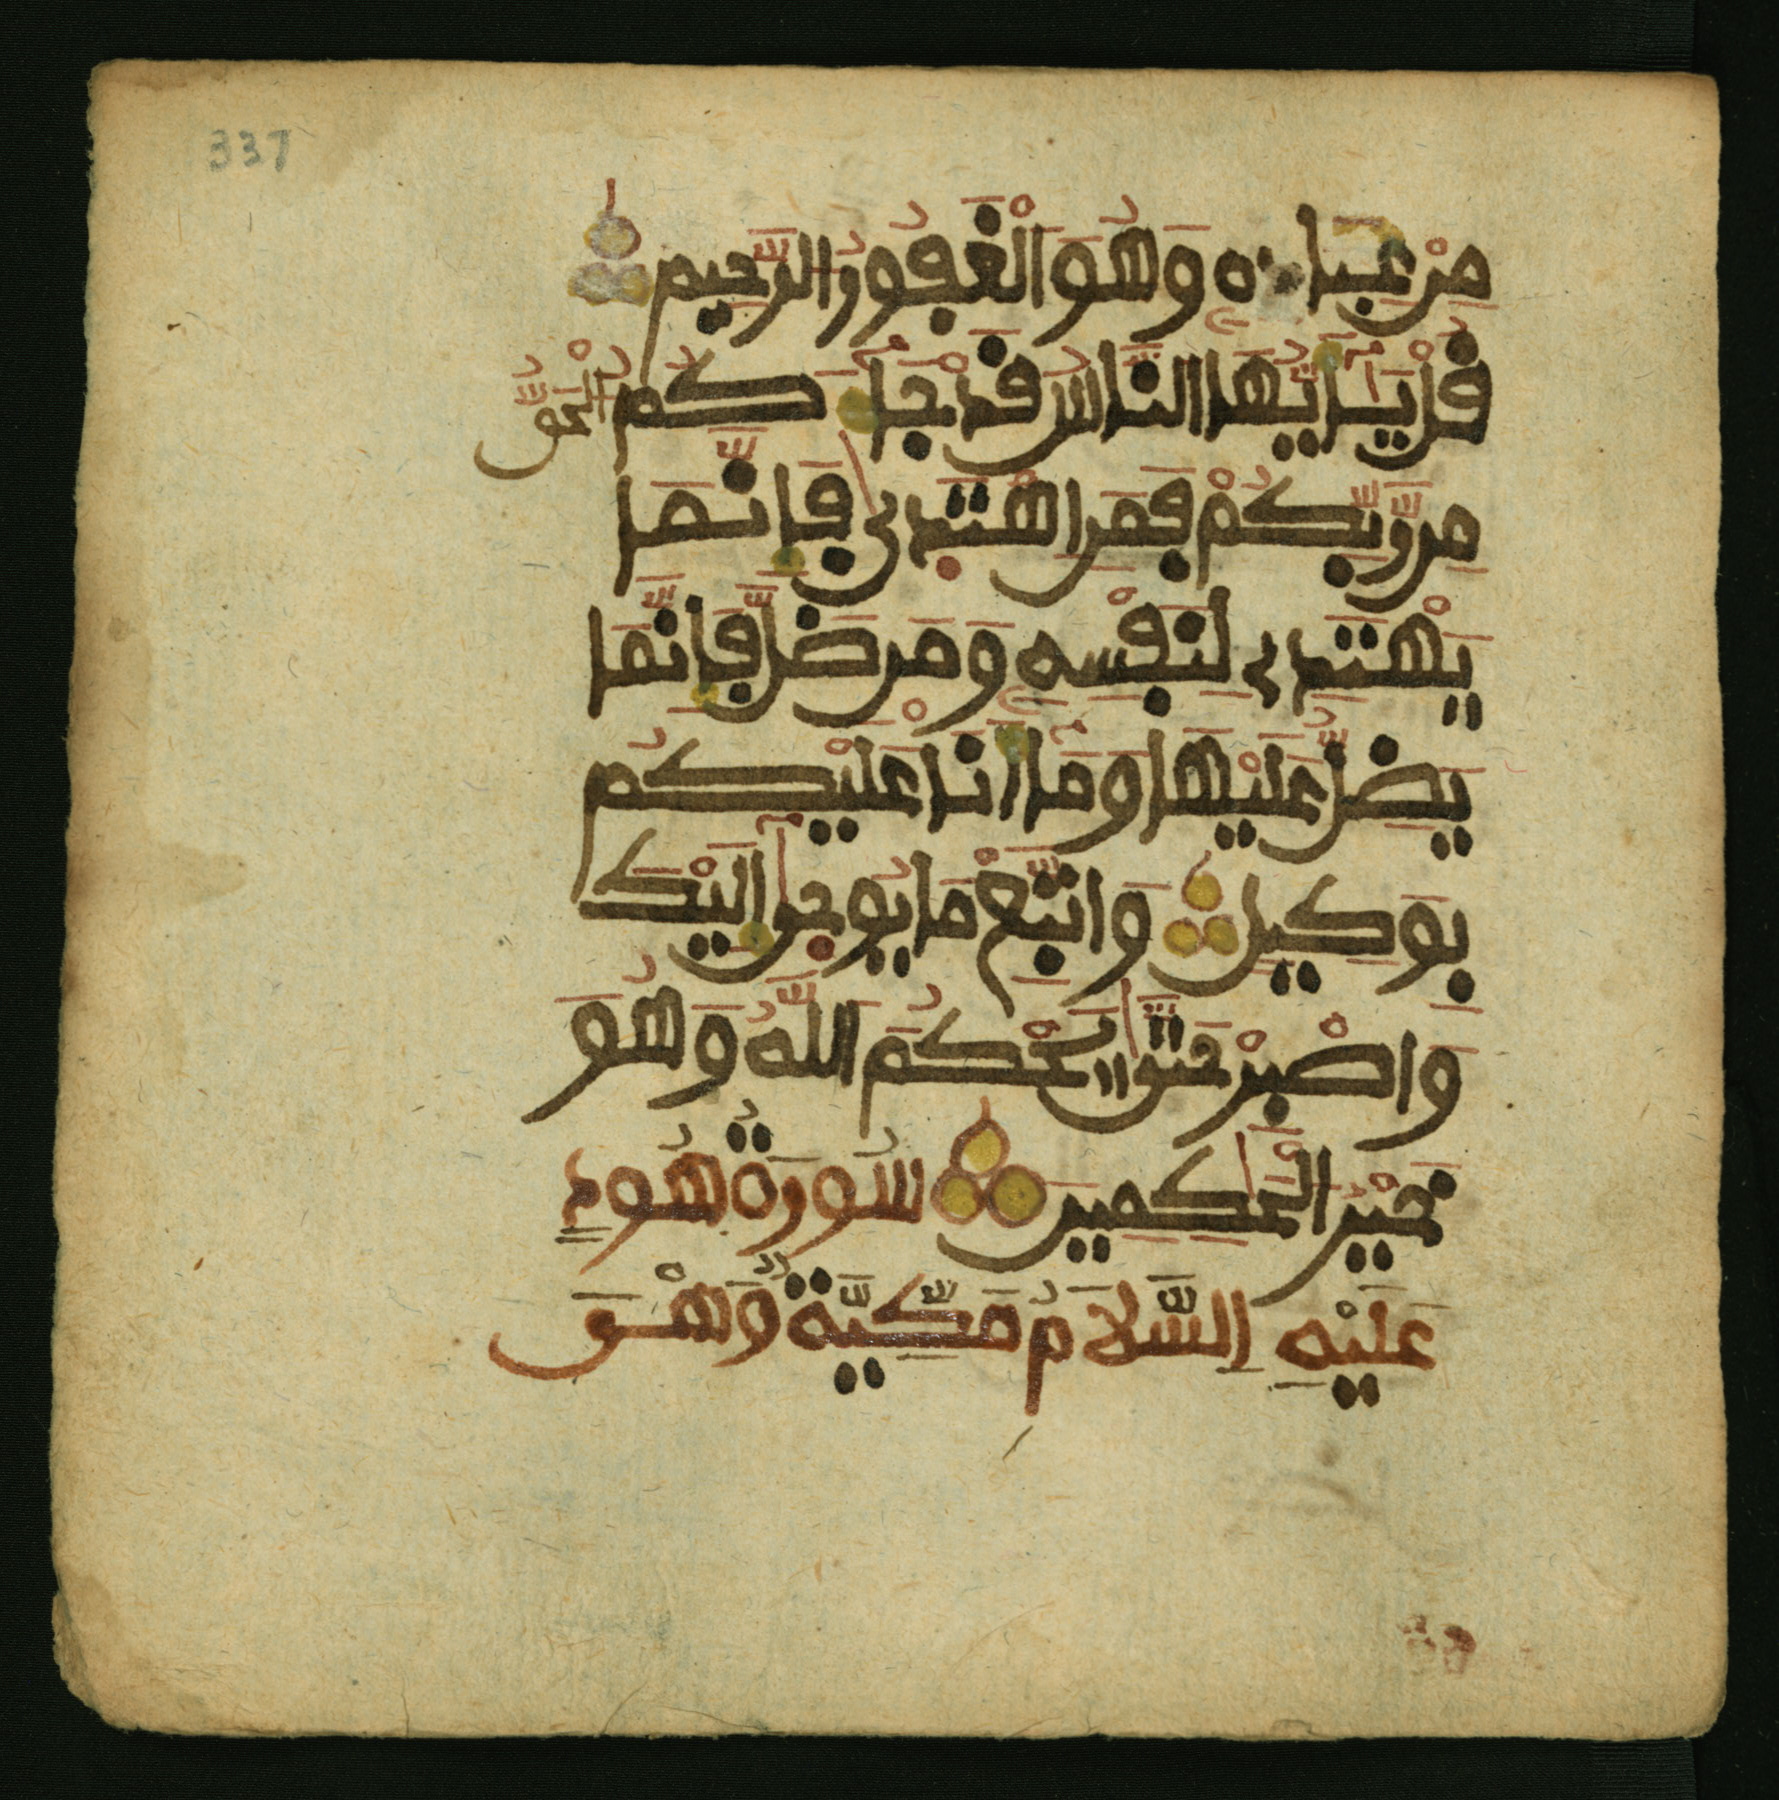 337
مِنْ عِبَادِهِ وَهُوَ الْغَفُورُ الرَّحِيمُ
قُلْ يَٰٓأَيُّهَا النَّاسُ قَدْ جَآءَكُمُ الْحَقُّ
مِن رَّبِّكُمْ فَمَنِ اهْتَدِىٰ فَإِنَّمَا
يَهْتَدِي لِنَفْسِهِ وَمَن ضَلَّ فَإِنَّمَا
يَضِلُّ عَلَيْهَا وَمَآ أَنَا عَلَيْكُم
بِوَكِيلٍ وَاتَّبِعْ مَا يُوحِىٰٓ إِلَيْكَ
وَاصْبِرْ حَتَّىٰ يَحْكُمَ اللَّهُ وَهُوَ
خَيْرُ الْحَٰكِمِينَ سُورَةُ هُودٍ
عَلَيْهِ السَّلَامُ مَكِّيَّةٌ وَهْىَ